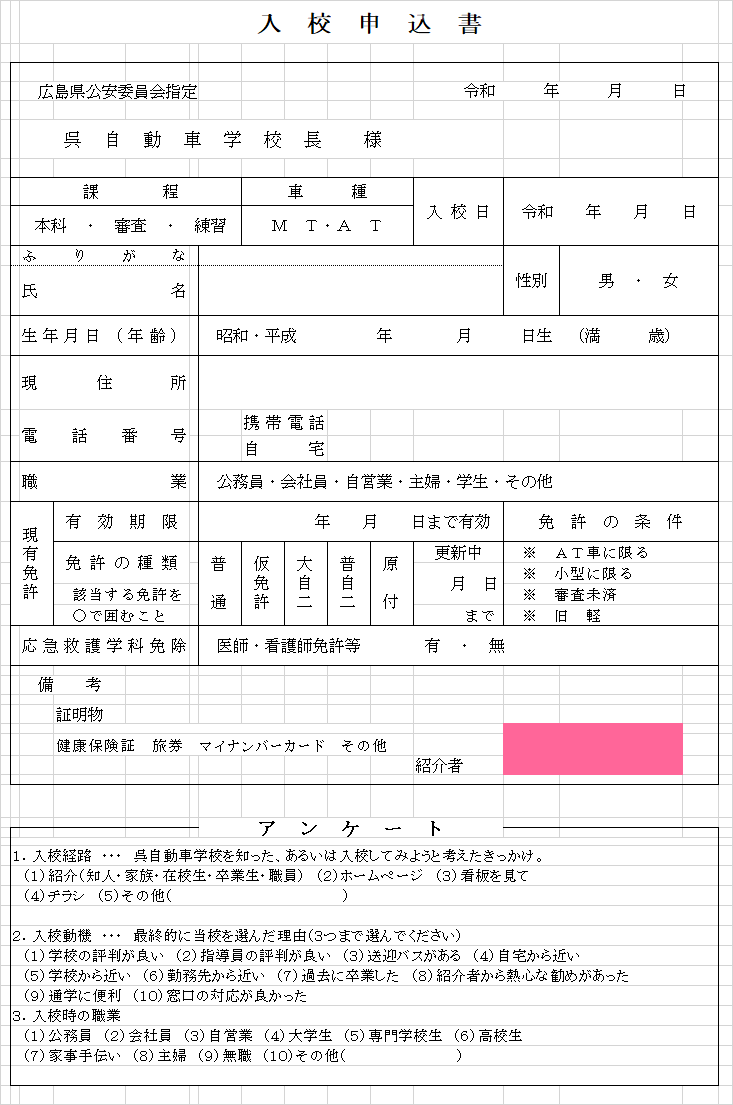 入校申込書
広島県公安委員会指定 令和 年 月 日
呉自動車学校長 様
課程 車種 入校日 令和 年 月 日
本科 ・ 審査 ・ 練習 ＭＴ・ＡＴ
ふりがな
氏名 性別 男 ・ 女
生年月日（年齢） 昭和・平成 年 月 日生 （満 歳）
現住所
電話番号 携帯電話
自宅
職業 公務員・会社員・自営業・主婦・学生・その他
現有免許 有効期限 年 月 日まで有効 免許の条件
免許の種類 普通 仮免許 大自二 普自二 原付 更新中 ※ ＡＴ車に限る
月 日 ※ 小型に限る
該当する免許を ※ 審査未済
○で囲むこと まで ※ 旧 軽
応急救護学科免除 医師・看護師免許等 有 ・ 無
備考
証明物
健康保険証 旅券 マイナンバーカード その他
紹介者
アンケート
１．入校経路 ･･･ 呉自動車学校を知った、あるいは入校してみようと考えたきっかけ。
（１）紹介（知人・家族・在校生・卒業生・職員） （２）ホームページ （３）看板を見て
（４）チラシ （５）その他（ ）
２．入校動機 ･･･ 最終的に当校を選んだ理由（３つまで選んでください）
（１）学校の評判が良い （２）指導員の評判が良い （３）送迎バスがある （４）自宅から近い
（５）学校から近い （６）勤務先から近い （７）過去に卒業した （８）紹介者から熱心な勧めがあった
（９）通学に便利 （１０）窓口の対応が良かった
３．入校時の職業
（１）公務員 （２）会社員 （３）自営業 （４）大学生 （５）専門学校生 （６）高校生
（７）家事手伝い （８）主婦 （９）無職 （１０）その他（ ）